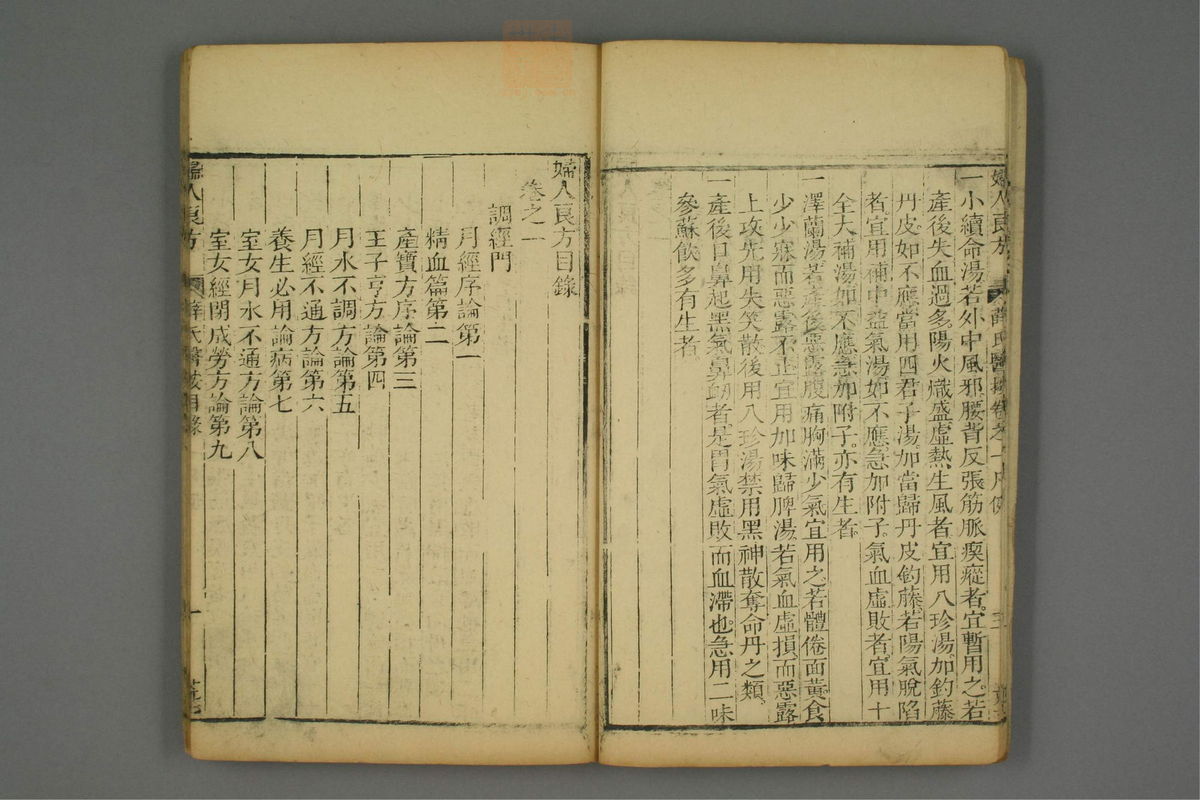 婦人良方　薛氏醫按卷之一凡例
一小續命湯若外中風邪腰背反張筋脈瘈瘲者宜暫用之若
產後失血過多陽火熾盛虛熱生風者宜用八珍湯加鈞藤
丹皮如不應當用四君子湯加當歸丹皮鈞藤若陽氣脫陷
者宜用補中益氣湯如不應急加附子氣血虛敗者宜用十
全大補湯如不應急加附子亦有生者
一澤蘭湯若產後惡露腹痛胸滿少氣宜用之若體倦面黃食
少少寐而惡露不止宜用加味歸脾湯若氣血虛損而惡露
上攻先用失笑散後用八珍湯禁用黑神散奪命丹之類
一產後口鼻起黑氣鼻衂者是胃氣虛敗而血滯也急用二味
參蘇飲多有生者
婦人良方目錄
卷之一
調經門
月經序論第一
精血篇第二
產寶方序論第三
王子亨方論第四
月水不調方論第五
月經不通方論第六
養生必用論病第七
室女月水不通方論第八
室女經閉成勞方論第九
婦人良方　薛氏醫按目錄　一